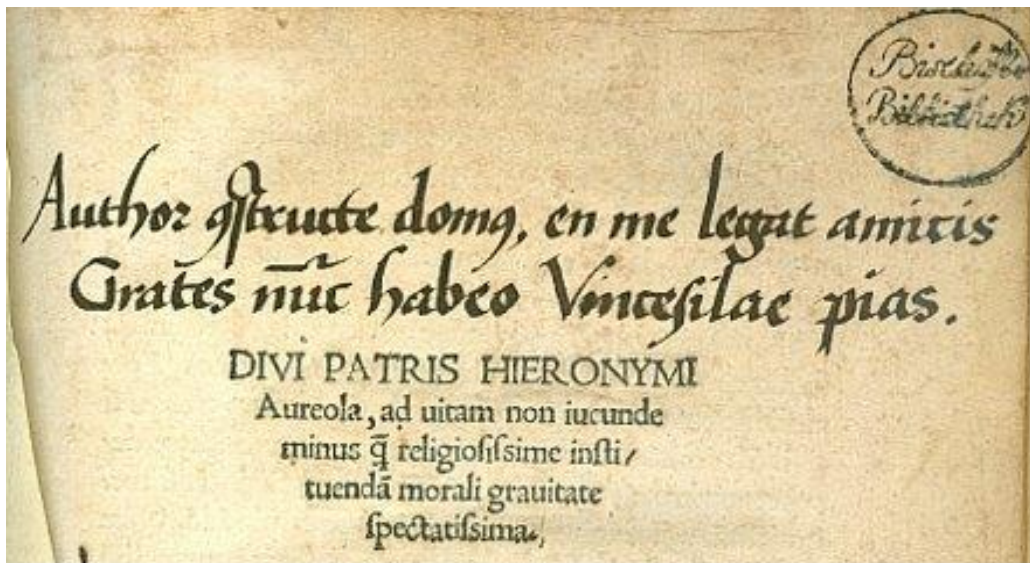 Bibliothek
Author ꝯstructe domꝰ, en me legat amicis
Grates nūc habeo Vincesilae pias.
DIVI PATRIS HIERONYMI
Aureola, ad uitam non iucunde
minus q̄ religiosissime insti/
tuendā morali grauitate
spectatissima.,